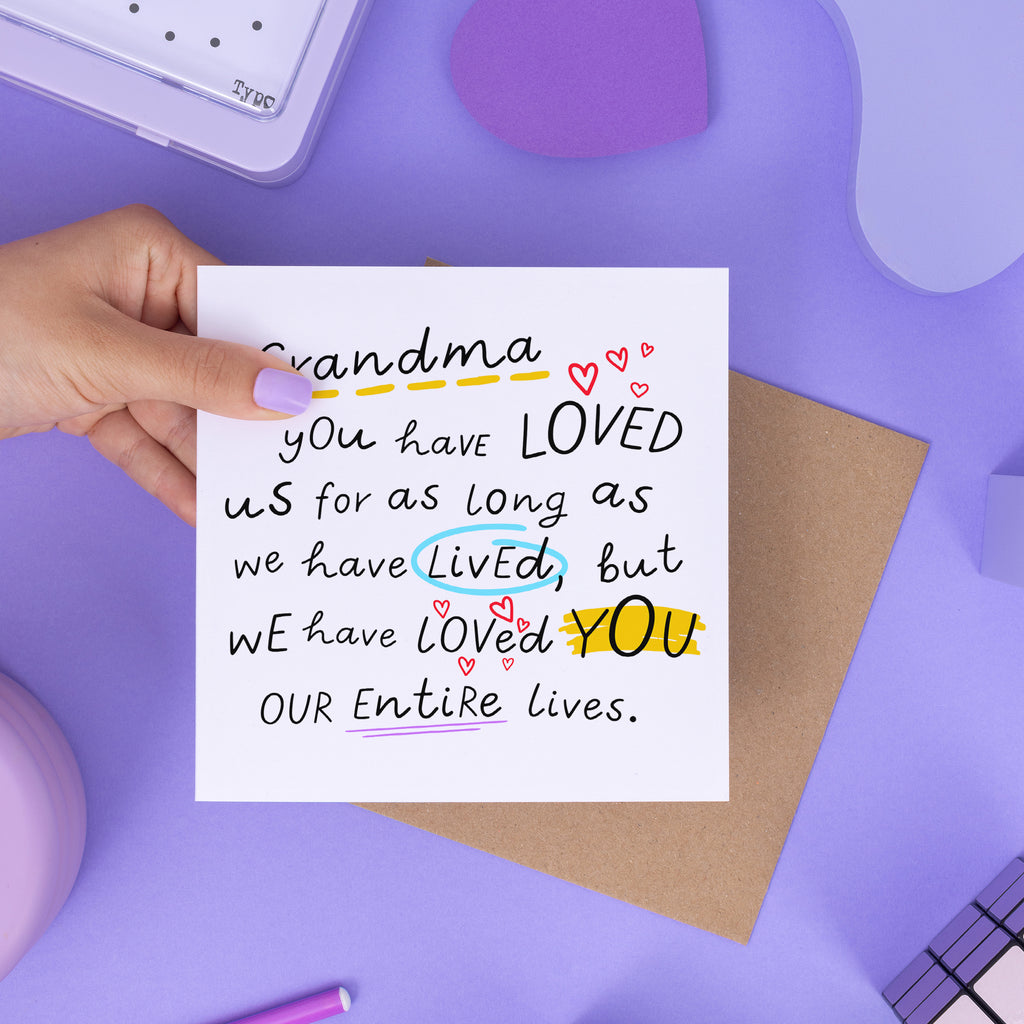 Typo
Grandma
yOu have LOVED
us for as long as
we have LivEd, but
wE have lOVed YOU
OUR EntiRe lives.